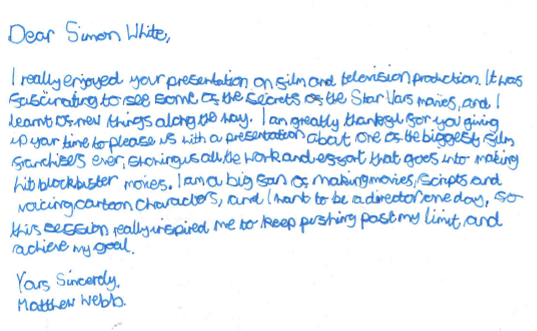 Dear Simon White,
I really enjoyed your presentation on film and television production. It was
fascinating to see some of the secrets of the Star Wars movies, and I
learnt of new things along the way. I am greatly thankful for you giving
up your time to please us with a presentation about one of the biggest film
franchises ever, showing us all the work and effort that goes into making
hit blockbuster movies. I am a big fan of making movies, scripts and
voicing cartoon characters, and I want to be a director one day, so
this session really inspired me to keep pushing past my limit, and
achieve my goal.
Yours Sincerly,
Matthew Webb.